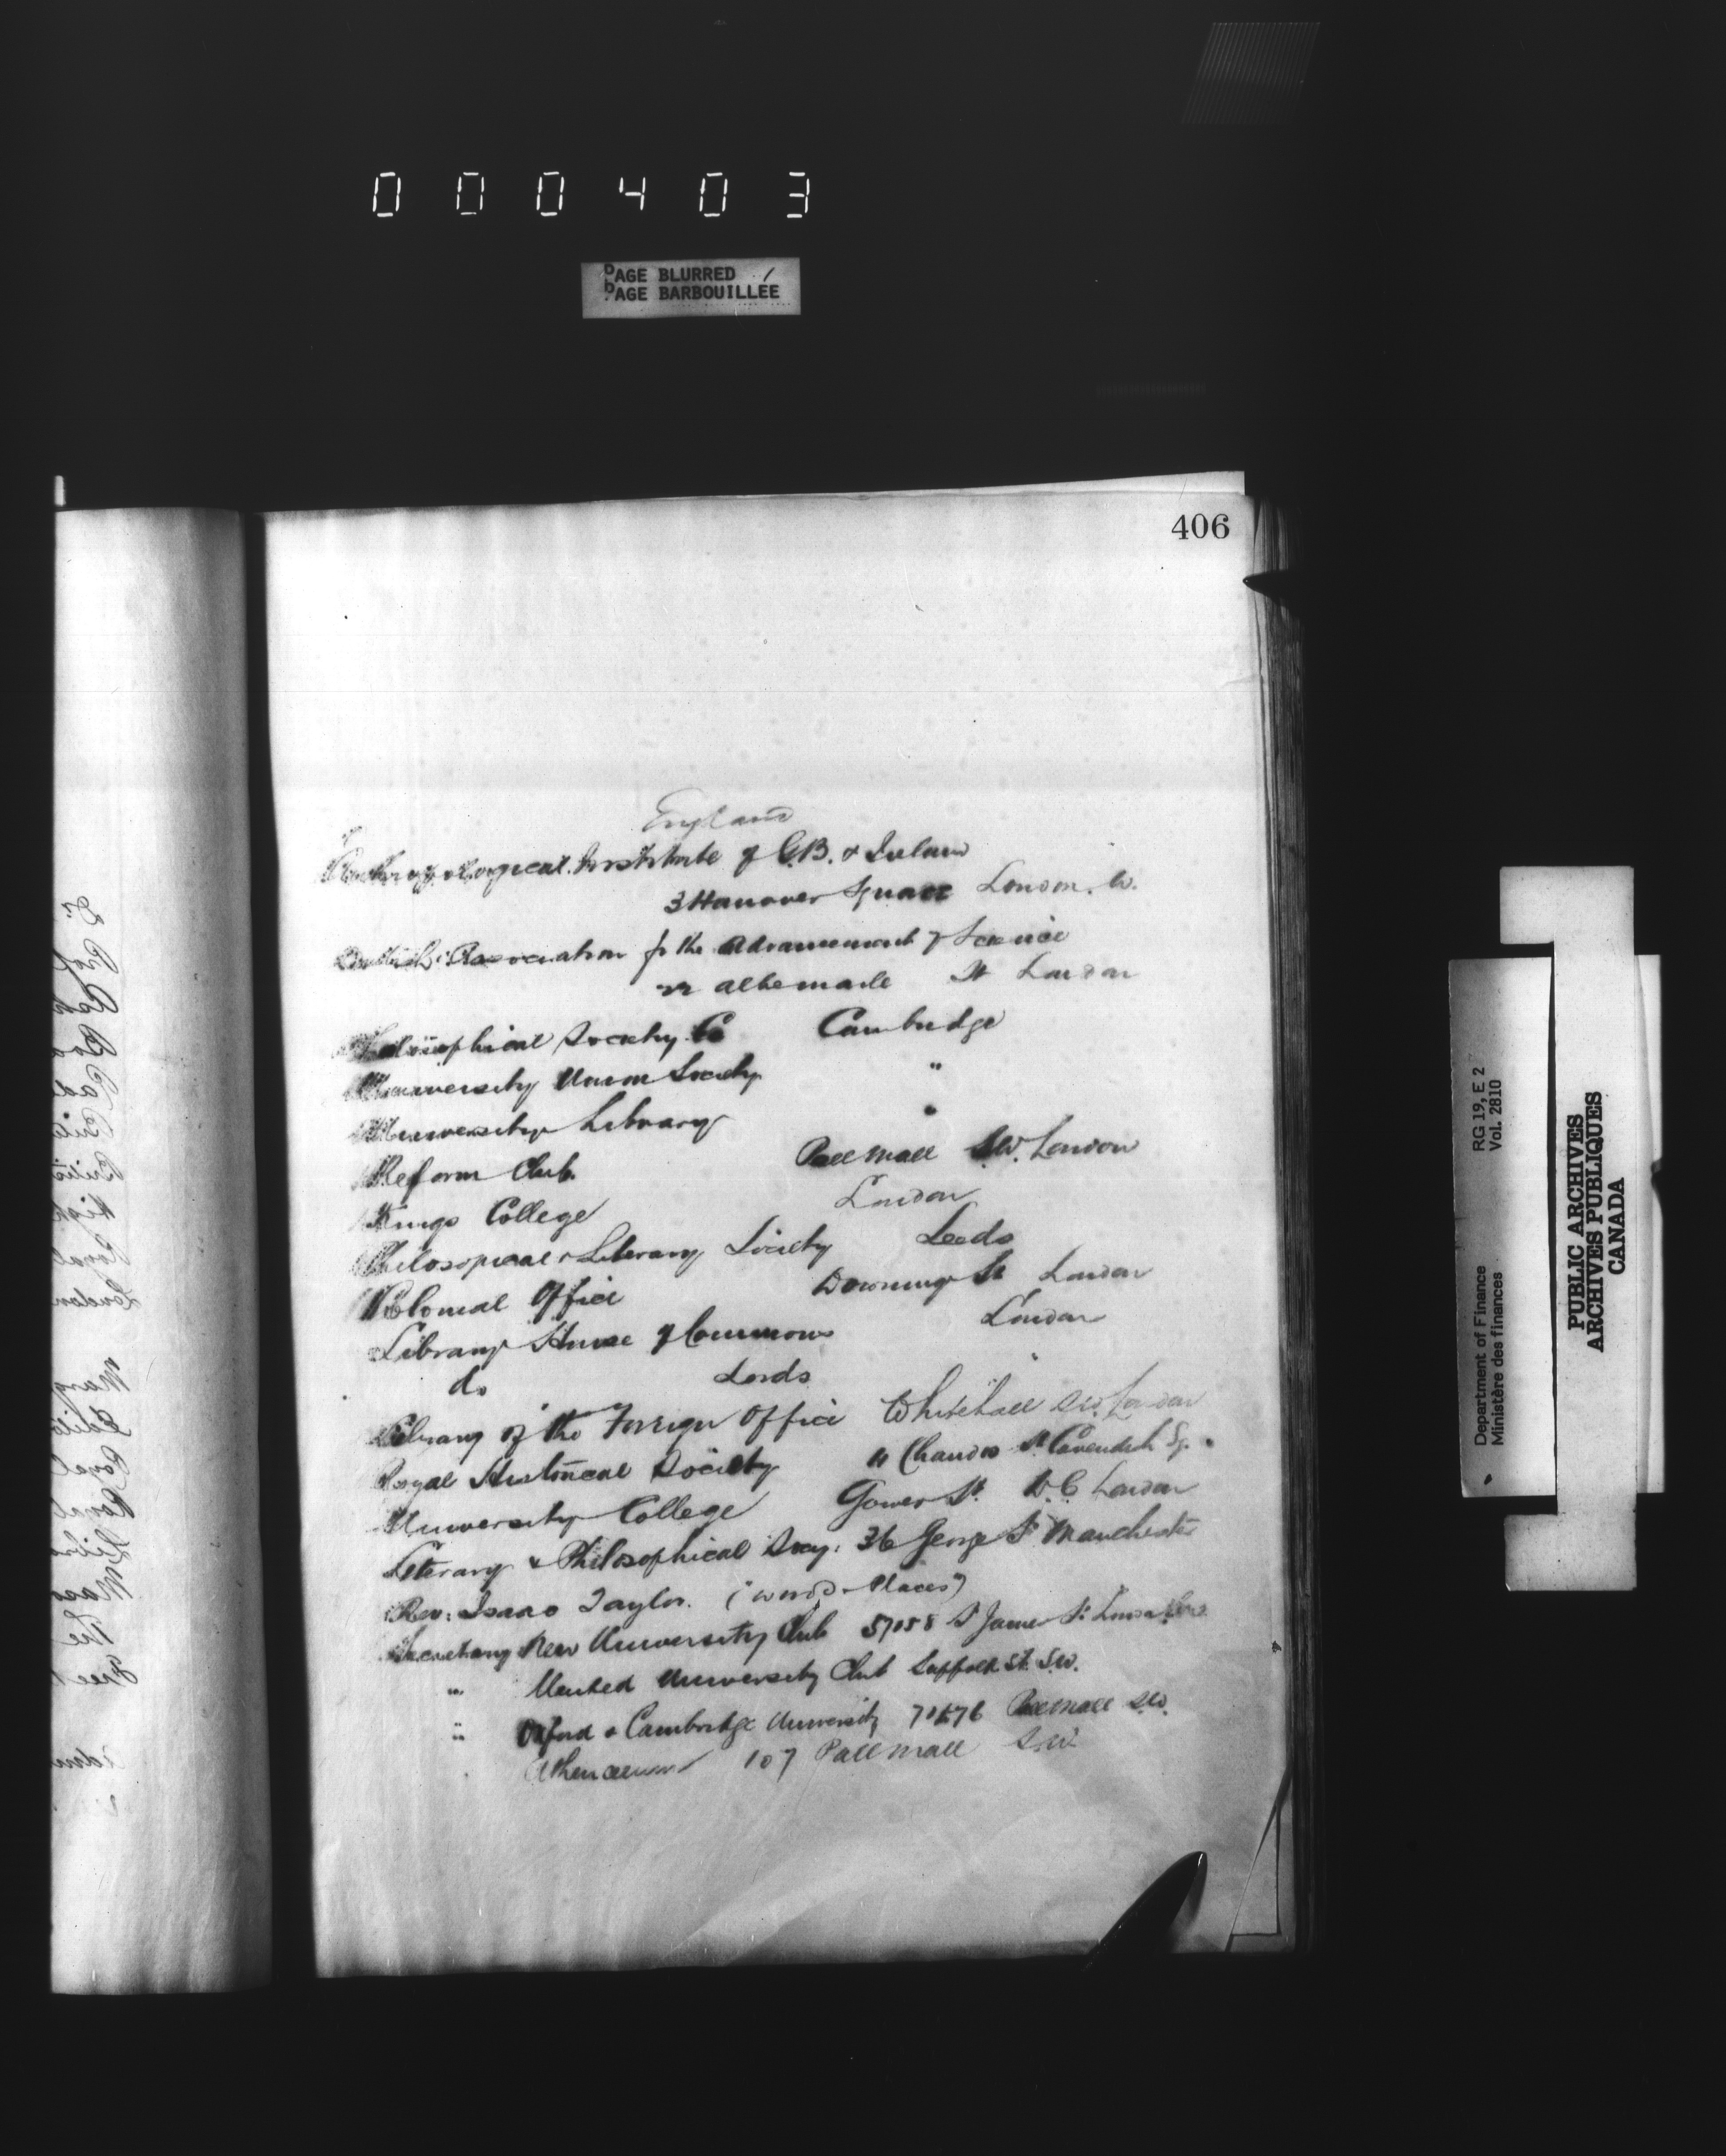 000403
PAGE BLURRED
PAGE BARBOUILLÉE
406
England
Anthropological Institute of G.B. & Ireland
3 Hanover Square London. W.
British Association for the Advancement of Science
22 Albemarle St London
Philosophical Society Cambridge
University Union Society "
University Library "
Reform Club. Pall Mall S.W. London
Kings College London
Philosopical & Literary Society Leeds
Colonial Office Downing St London
Library House of Commons London
do Lords "
Library of the Foreign Office Whitehall S.W. London
Royal Historical Society 11 Chandos St Cavendish Sq.
University College Gower St. W.C London
Literary & Philosophical Socy: 36 George St Manchester
Rev: Isaac Taylor. ("Words & Places")
Secretary New University Club 57 & 58 St James St: London S.W.
" United University Club Suffolk St. S.W.
" Oxford & Cambridge University 71 to 76 Pall Mall S.W.
Athenaeum 107 Pall Mall S.W.
Department of Finance RG 19, E 2
Ministère des finances Vol. 2810
PUBLIC ARCHIVES
ARCHIVES PUBLIQUES
CANADA